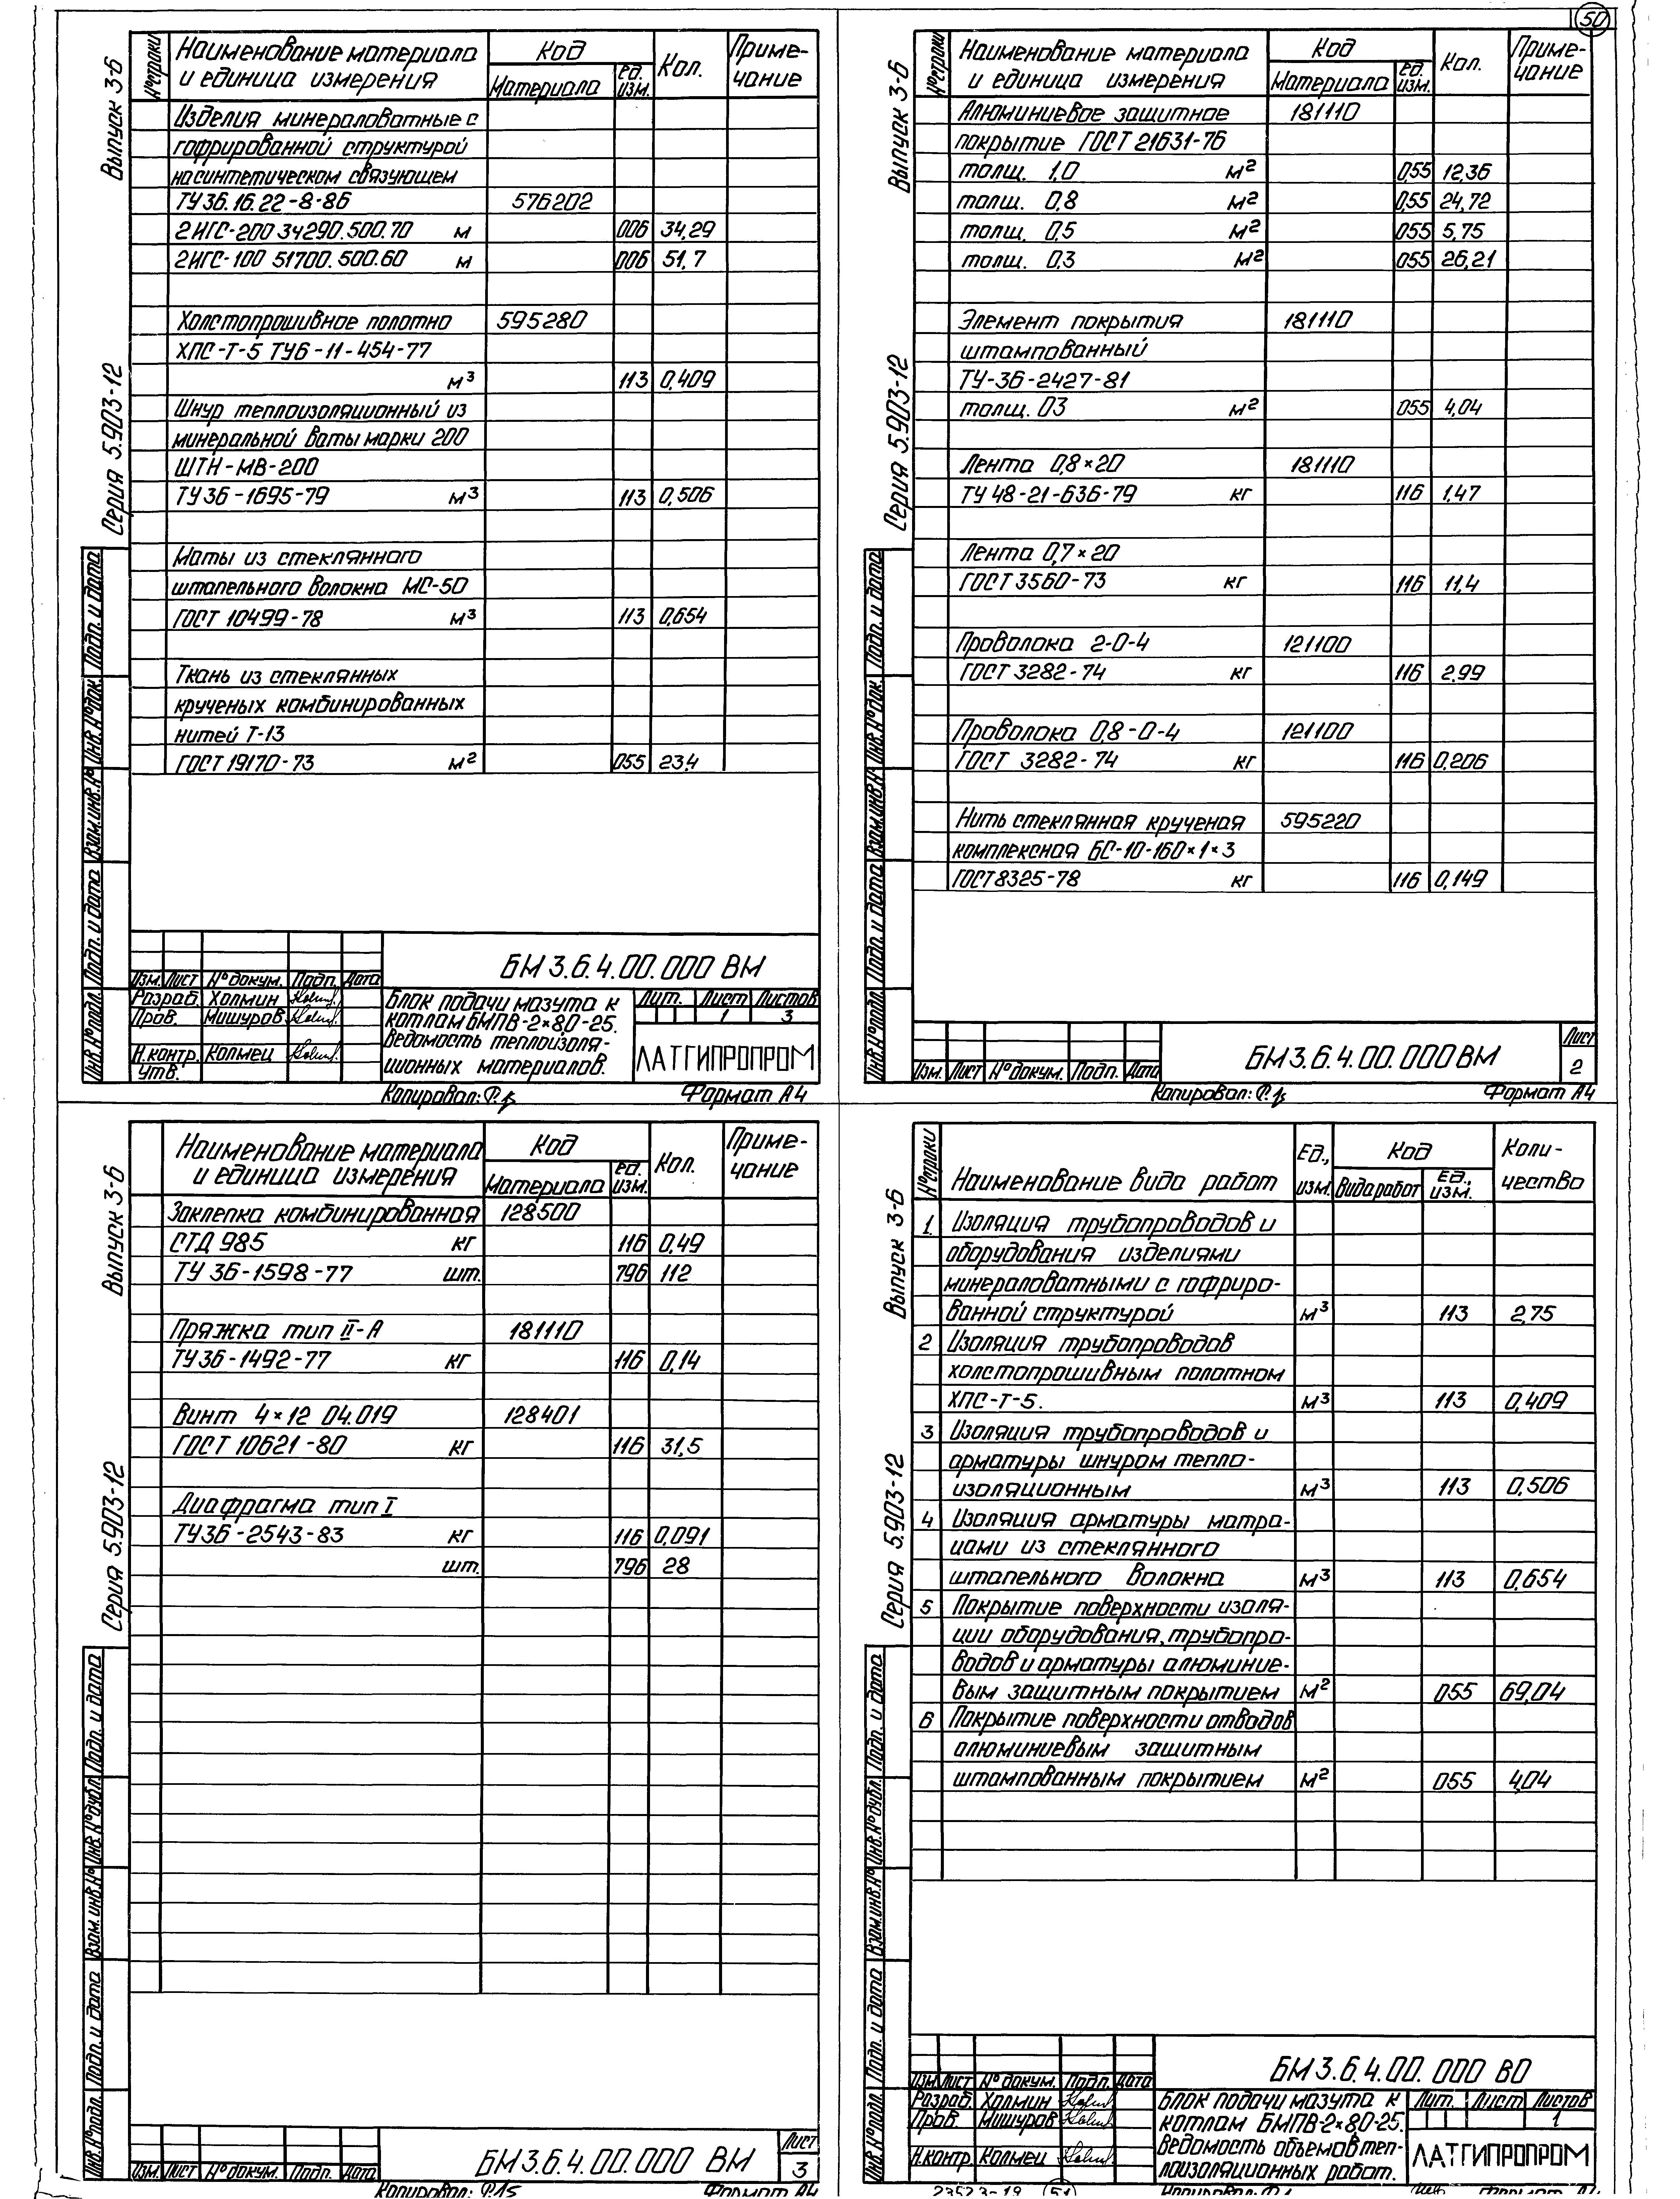 50
Выпуск 3-6
Серия 5.903-12
№ строки
Наименование материала
и единица измерения
Код
Материала
ед. изм.
Кол.
Приме-
чание
Изделия минераловатные с
гофрированной структурой
на синтетическом связующем
ТУ 36.16.22-8-86 576202
2ИГС-200 34290.500.70 м 006 34,29
2ИГС-100 51700.500.60 м 006 51,7
Холстопрошивное полотно 595280
ХПС-Т-5 ТУ6-11-454-77
м³ 113 0,409
Шнур теплоизоляционный из
минеральной ваты марки 200
ШТН-МВ-200
ТУ 36-1695-79 м³ 113 0,506
Маты из стеклянного
штапельного волокна МС-50
ГОСТ 10499-78 м³ 113 0,654
Ткань из стеклянных
крученых комбинированных
нитей Т-13
ГОСТ 19170-73 м² 055 23,4
Инв.№ подл. Подп. и дата Взам.инв.№ Инв.№ док. Подп. и дата
БМ 3.6.4.00.000 ВМ
Изм. Лист № докум. Подп. Дата
Разраб. Холмин
Пров. Мишуров
Н.контр. Колмец
Утв.
Блок подачи мазута к
котлам БМПВ-2×8,0-25.
Ведомость теплоизоля-
ционных материалов.
Лит. Лист Листов
1 3
ЛАТГИПРОПРОМ
Копировал: Формат А4
Выпуск 3-6
Серия 5.903-12
№ строки
Наименование материала
и единица измерения
Код
Материала
ед. изм.
Кол.
Приме-
чание
Алюминиевое защитное 181110
покрытие ГОСТ 21631-76
толщ. 1,0 м² 055 12,36
толщ. 0,8 м² 055 24,72
толщ. 0,5 м² 055 5,75
толщ. 0,3 м² 055 26,21
Элемент покрытия 181110
штампованный
ТУ-36-2427-81
толщ. 03 м² 055 4,04
Лента 0,8×20 181110
ТУ 48-21-636-79 кг 116 1,47
Лента 0,7×20
ГОСТ 3560-73 кг 116 11,4
Проволока 2-0-4 121100
ГОСТ 3282-74 кг 116 2,99
Проволока 0,8-0-4 121100
ГОСТ 3282-74 кг 116 0,206
Нить стеклянная крученая 595220
комплексная БС-10-160×1×3
ГОСТ 8325-78 кг 116 0,149
Инв.№ подл. Подп. и дата Взам.инв.№ Инв.№ док. Подп. и дата
Изм. Лист № докум. Подп. Дата
БМ 3.6.4.00.000 ВМ
Лист
2
Копировал: Формат А4
Выпуск 3-6
Серия 5.903-12
Наименование материала
и единица измерения
Код
Материала
ед. изм.
Кол.
Приме-
чание
Заклепка комбинированная 128500
СТД 985 кг 116 0,49
ТУ 36-1598-77 шт. 796 112
Пряжка тип II-А 181110
ТУ 36-1492-77 кг 116 0,14
Винт 4×12 04.019 128401
ГОСТ 10621-80 кг 116 31,5
Диафрагма тип I
ТУ 36-2543-83 кг 116 0,091
шт. 796 28
Инв.№ подл. Подп. и дата Взам.инв.№ Инв.№ дубл. Подп. и дата
Изм. Лист № докум. Подп. Дата
БМ 3.6.4.00.000 ВМ
Лист
3
Копировал: Формат А4
Выпуск 3-6
Серия 5.903-12
№ строки
Наименование вида работ
Ед.,
изм.
Код
Вида работ
Ед.,
изм.
Коли-
чество
1. Изоляция трубопроводов и
оборудования изделиями
минераловатными с гофриро-
ванной структурой м³ 113 2,75
2 Изоляция трубопроводов
холстопрошивным полотном
ХПС-Т-5. м³ 113 0,409
3 Изоляция трубопроводов и
арматуры шнуром тепло-
изоляционным м³ 113 0,506
4 Изоляция арматуры матра-
цами из стеклянного
штапельного волокна м³ 113 0,654
5 Покрытие поверхности изоля-
ции оборудования, трубопро-
водов и арматуры алюминие-
вым защитным покрытием м² 055 69,04
6 Покрытие поверхности отводов
алюминиевым защитным
штампованным покрытием м² 055 4,04
Инв.№ подл. Подп. и дата Взам.инв.№ Инв.№ дубл. Подп. и дата
БМ 3.6.4.00.000 ВО
Изм. Лист № докум. Подп. Дата
Разраб. Холмин
Пров. Мишуров
Н.контр. Колмец
Блок подачи мазута к
котлам БМПВ-2×8,0-25.
Ведомость объемов теп-
лоизоляционных работ.
Лит. Лист Листов
1
ЛАТГИПРОПРОМ
23523-19 51
Копировал: Формат А4